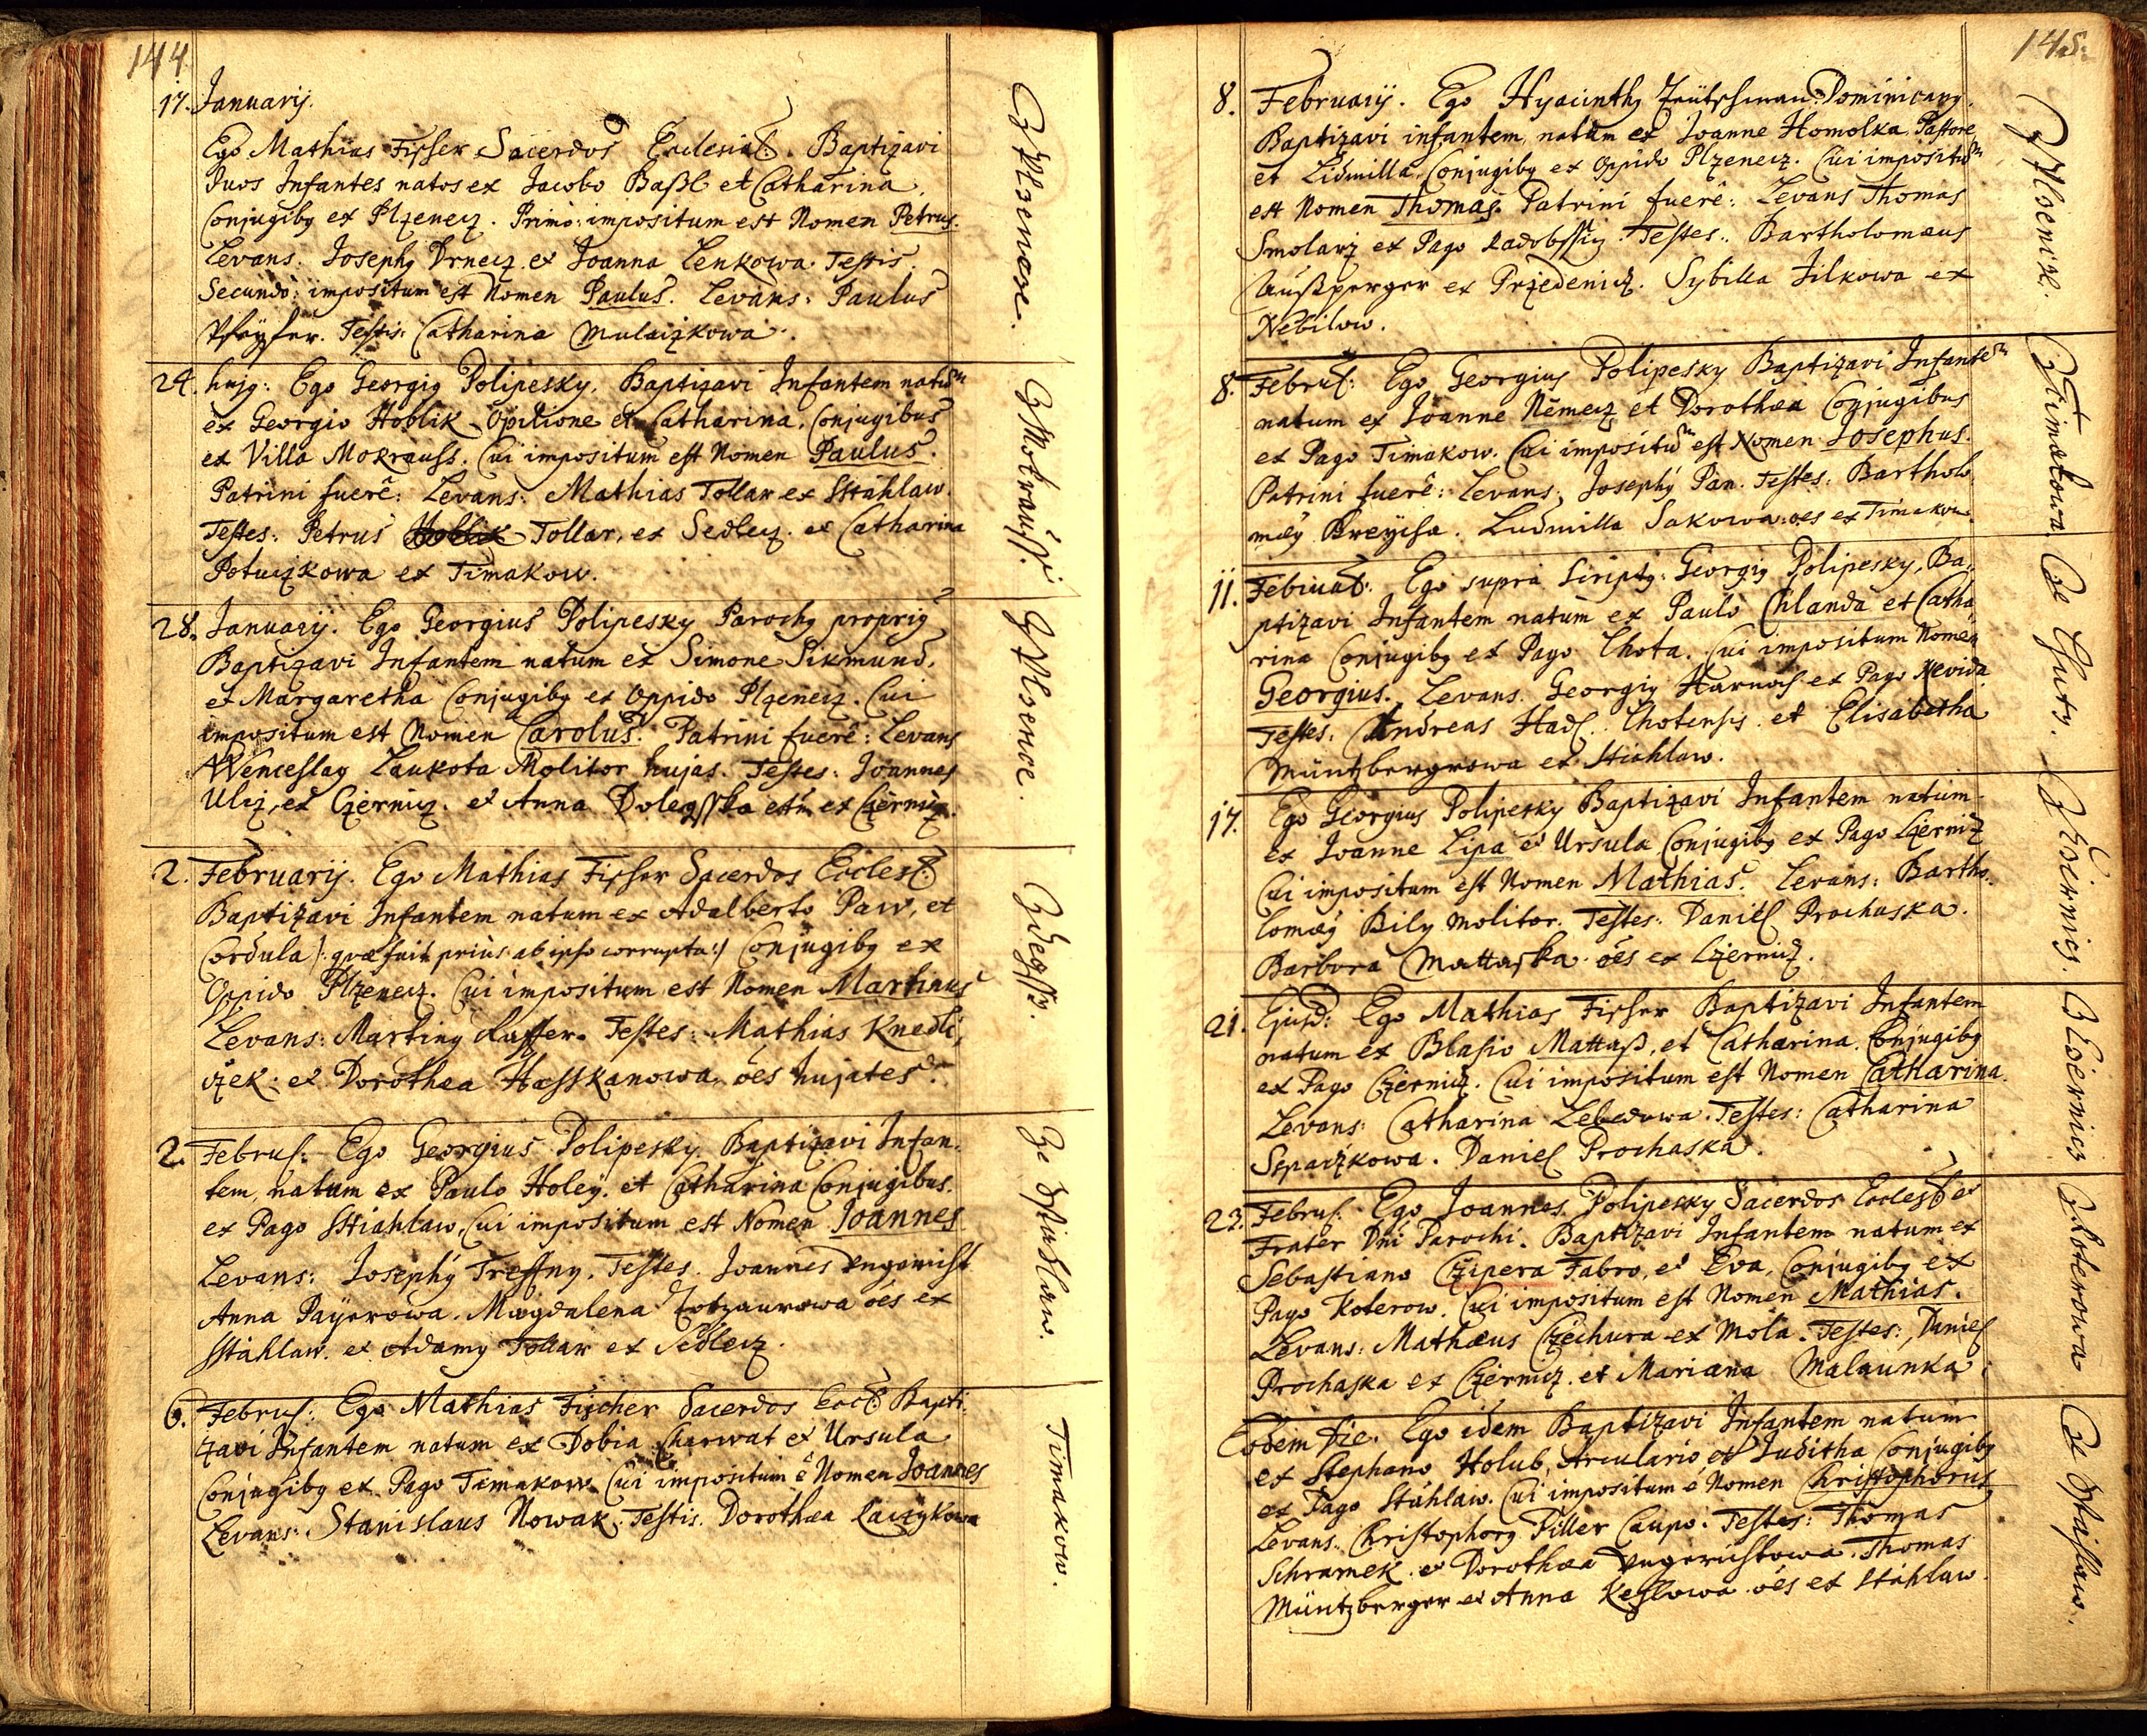 144
17. Januarij.
Ego Mathias Fisser Sacerdos Ecclesiae. Baptizavi
duos Infantes natos ex Jacobo Baßl et Catharina
Conjugibg ex Plzenecz. Primo: impositum est Nomen Petrus.
Levans. Josephg Drnecz et Joanna Lenkowa Testis.
Secundo: impositum est Nomen Paulus. Levans: Paulus
Testis: Catharina Mulaczkowa.
Z Plzencze.
24. hujg: Ego Georgig Polipesky, Baptizavi Infantem natum
ex Georgio Hoblik Opilione et Catharina, Conjugibus
ex Villa Mokrauss. Cui impositum est Nomen Paulus.
Patrini fuerê: Levans: Mathias Tollar ex Sstahlaw.
Testes: Petrus Tollar, ex Sedlecz. et Catharina
Potuczkowa ex Timakow.
Z Mokraussi
28. Januarij. Ego Georgius Polipesky Parochg proprig
Baptizavi Infantem natum ex Simone Sikmund,
et Margaretha Conjugibg ex Oppido Plzenecz. Cui
impositum est Nomen Carolus. Patrini fuerê: Levans
Wenceslag Laukota Molitor hujas. Testes: Joannes
Ulcz, ex Czernicz. et Anna ex Czernicz.
Z Plzence.
2. Februarij. Ego Mathias Fisser Sacerdos Eccles:
Baptizavi Infantem natum ex Adalberto Paw, et
Cordula /: quae fuit prius ab ipso corrupta :/ Conjugibg ex
Oppido Plzenecz. Cui impositum est Nomen Martinus
Levans: Marting Testes: Mathias Knedli,
czek: et Dorothea Hasskanowa, oês hujates.
Zdegssy.
2. Februs: Ego Georgius Polipesky Baptizavi Infan,
tem, natum ex Paulo Holey, et Catharina Conjugibus.
ex Pago Sstiahlaw, Cui impositum est Nomen Joannes
Levans: Josephg Treffny. Testes. Joannes Vngericht
Anna Payerowa. Magdalena oês ex
Sstahlaw. et Adamg Tollar ex Sedlecz.
Ze Sstiahlaw.
6. Februs: Ego Mathias Fischer Sacerdos Eccl: Bapti,
zavi Infantem natum ex Dobia Charwat et Ursula
Conjugibg ex Pago Timakow. Cui impositum ê Nomen Joannes
Levans: Stanislaus Nowak. Testis. Dorothea
Timakow.
145.
8. Februarij. Ego Hyacinthg Dominicang.
Baptizavi infantem, natum ex Joanne Homolka, Pastore
et Lidmilla, Conjugibg ex Oppido Plzenecz. Cui impositum
est Nomen Thomas. Patrini fuerê: Levans Thomas
Smolarz ex Pago Testes: Bartholomaeus
Außperger ex Przedenicz. Sybilla Jilkowa ex
Nebilow.
Z Plzencze.
8. Februs: Ego Georgius Polipesky Baptizavi Infantem
natum ex Joanne Nêmecz et Dorothea Conjugibus
ex Pago Timakow. Cui impositum est Nomen Josephus.
Patrini fuerê: Levans: Josephg Pan. Testes: Bartholo,
maeg Kreycha. Ludmilla Sakowa oês ex Timakow.
Z Timakowa.
11. Februa: Ego supra scriptg: Georgig Polipesky, Ba,
ptizavi Infantem natum ex Paulo Chlanda et Catha
rina Conjugibg ex Pago Lhota. Cui impositum Nomen
Georgius. Levans. Georgig Harnoch ex Pago
Testes. Andreas Hadl. Lhotensis et Elisabetha
Müntzbergrowa ex Stiahlaw.
Ze Lhoty.
17. Ego Georgius Polipesky Baptizavi Infantem natum
ex Joanne Lipa et Ursula Conjugibg ex Pago Czernicz
Cui impositum est Nomen Mathias. Levans: Bartho,
lomaeg Bily Molitor. Testes: Daniel Prochaska.
Barbora Mattaska oês ex Czernicz.
Z Czernicz.
21. Ejusd: Ego Mathias Fisser Baptizavi Infantem
natum ex Blasio Mattaß, et Catharina. Conjugibg
ex Pago Czernicz. Cui impositum est Nomen Catharina.
Levans: Catharina Lebedowa. Testes: Catharina
Sspaczkowa. Daniel Prochaska.
Z Czernicz
23. Februs: Ego Joannes Polipesky Sacerdos Eccles: et
Frater Dni Parochi. Baptizavi Infantem natum ex
Sebastiano Czipera Fabro, et Eva, Conjugibg ex
Pago Koterow. Cui impositum est Nomen Mathias.
Levans: Mathaeus Czechura ex Mola. Testes: Daniel
Prochaska ex Czernicz. et Mariana Malaunka.
Z Koterowa
Eodem Die. Ego idem Baptizavi Infantem natum
ex Stephano Holub, Arculario et Juditha Conjugibg
ex Pago Stáhlaw. Cui impositum ê Nomen Christophorus
Levans: Christophorg Piller Caupo. Testes: Thomas
Schramek. et Dorothea Vngerichtowa. Thomas
Müntzberger et Anna Keslowa oês ex Stáhlaw.
Ze Sstahlaw.